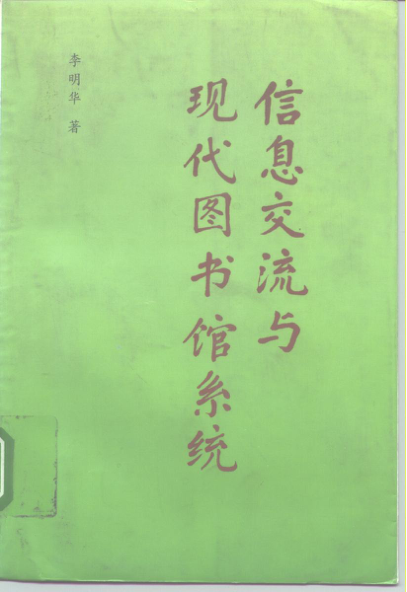 信息交流与
现代图书馆系统
李明华 著